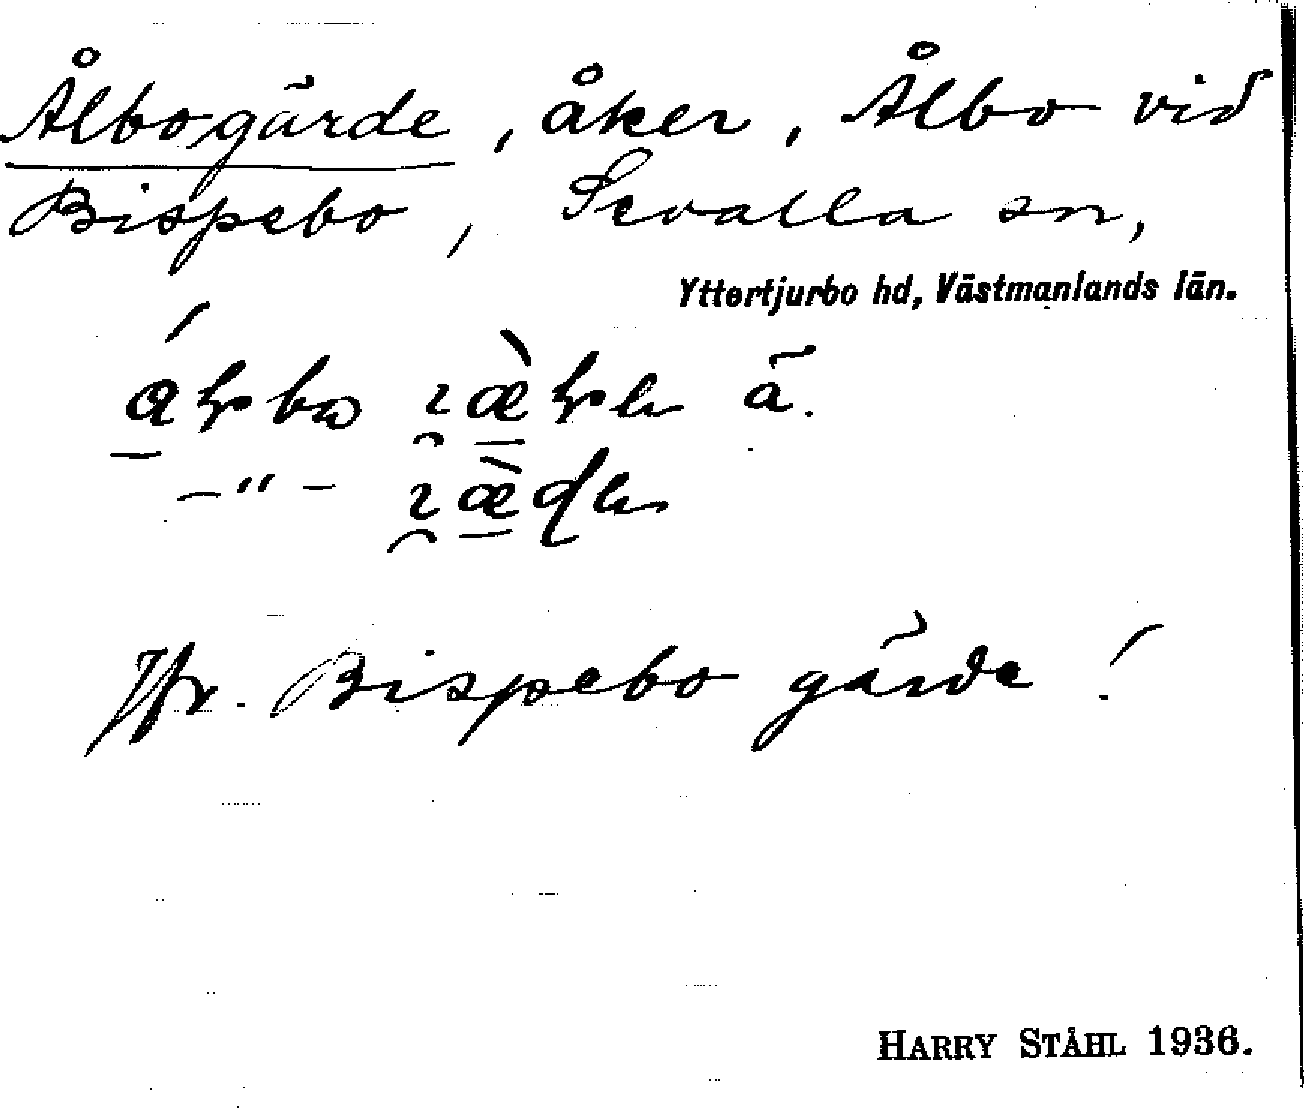 Ålbogärde, åker, Ålbo vid
Bispebo, Sevalla sn,
Yttertjurbo hd, Västmanlands län.
ä.
–"–
Jfr. Bispebo gärde!
HARRY STÅHL 1936.